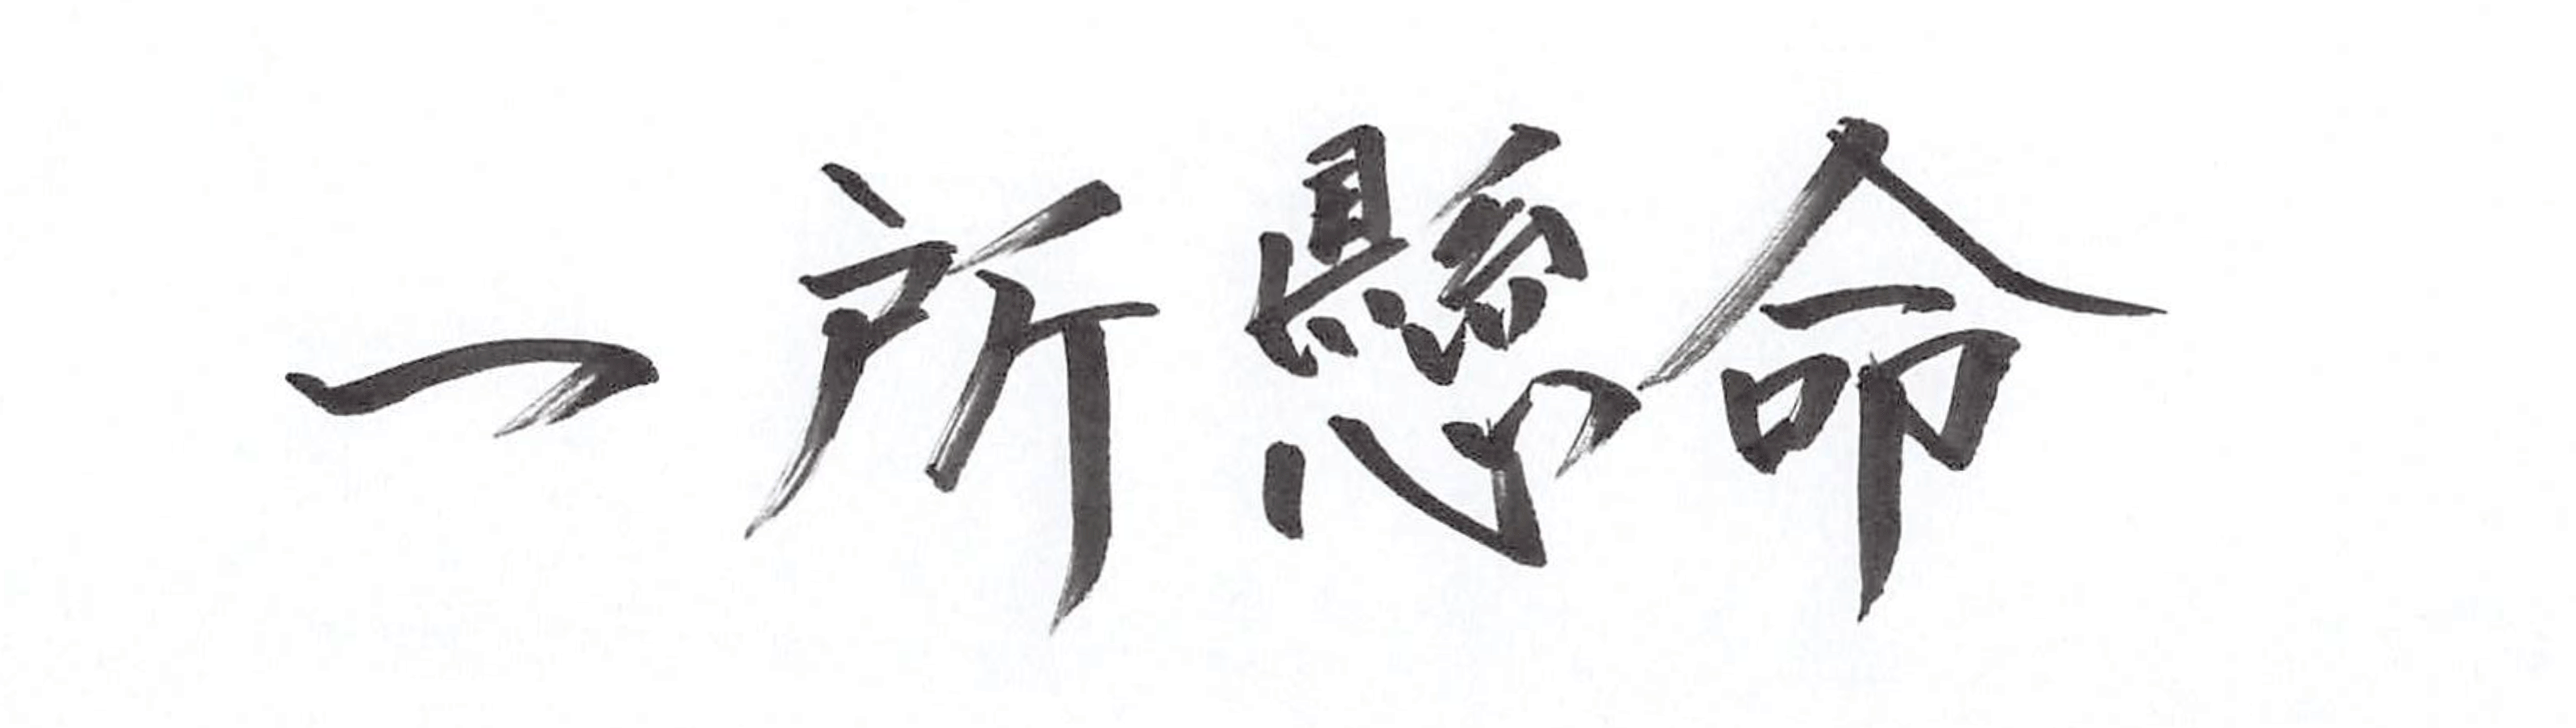 一所懸命